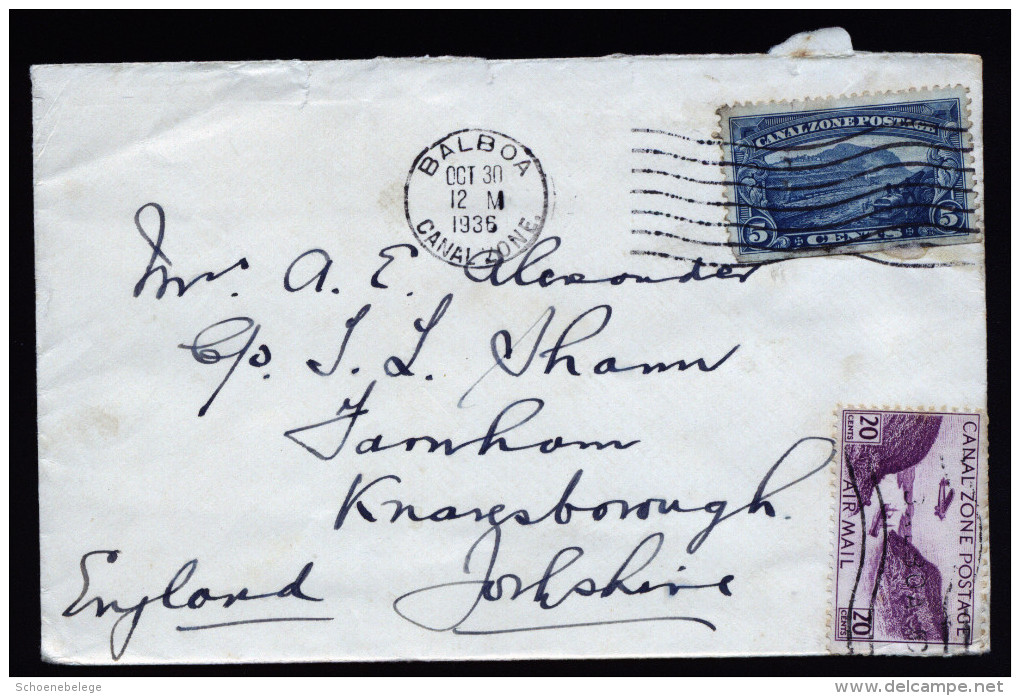 BALBOA
OCT 30
12 M
1936
CANAL ZONE.
CANAL ZONE POSTAGE
5 CENTS 5
Mrs. A. E. Alexander
C/o. J. L. Thamn
Farnham
Knaresborough.
England Yorkshire
CANAL ZONE POSTAGE
AIR MAIL
20 CENTS
20 CENTS
Schoenebelege
www.delcampe.net